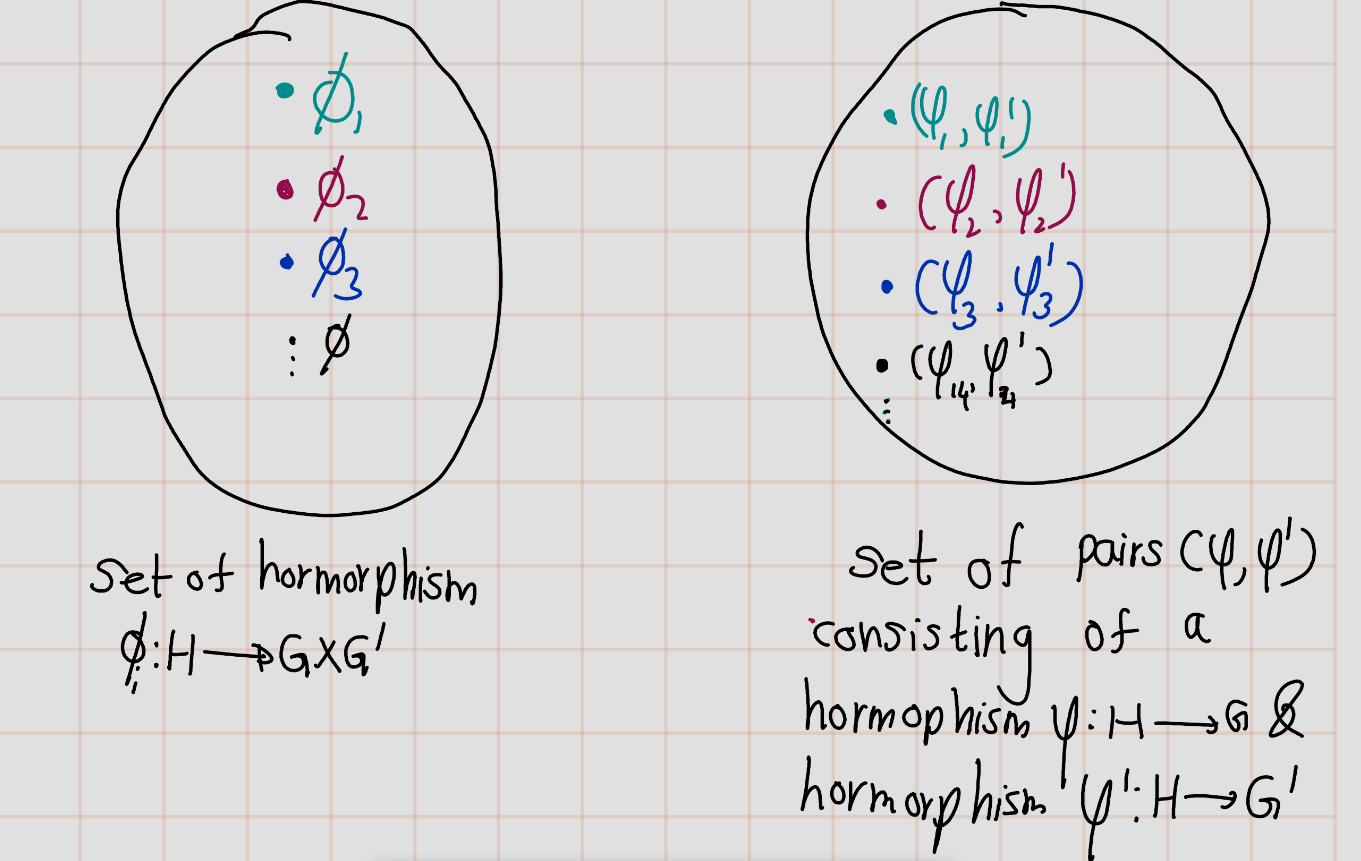 • ø₁
• ø₂
• ø₃
⋮ ø
set of hormorphism
ø: H → G×G'
• (φ₁, φ₁')
• (φ₂, φ₂')
• (φ₃, φ₃')
• (φ₁₄, φ'₄)
⋮
set of pairs (φ, φ')
consisting of a
hormophism φ: H → G &
hormorphism φ': H → G'